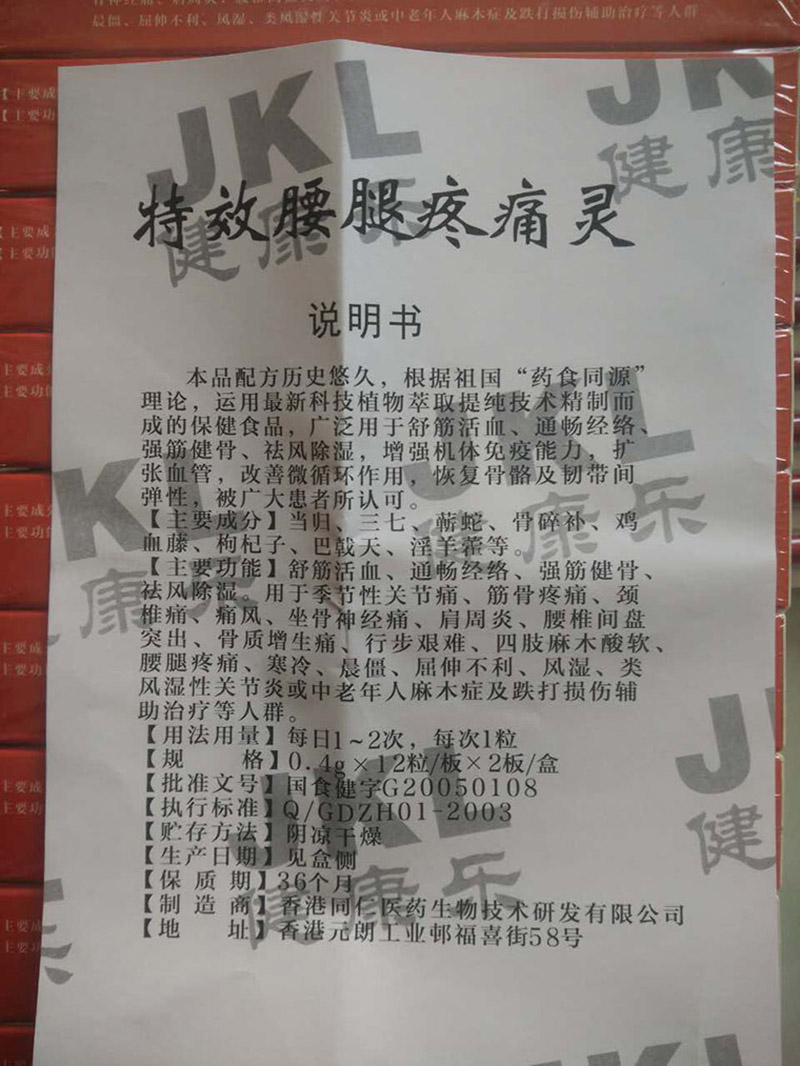 晨僵、屈伸不利、风湿、类风湿性关节炎或中老年人麻木症及跌打损伤辅助治疗等人群
JKL
健康乐
特效腰腿疼痛灵
说明书
本品配方历史悠久，根据祖国“药食同源”
理论，运用最新科技植物萃取提纯技术精制而
成的保健食品，广泛用于舒筋活血、通畅经络、
强筋健骨、祛风除湿，增强机体免疫能力，扩
张血管，改善微循环作用，恢复骨骼及韧带间
弹性，被广大患者所认可。
【主要成分】当归、三七、蕲蛇、骨碎补、鸡
血藤、枸杞子、巴戟天、淫羊藿等。
【主要功能】舒筋活血、通畅经络、强筋健骨、
祛风除湿。用于季节性关节痛、筋骨疼痛、颈
椎痛、痛风、坐骨神经痛、肩周炎、腰椎间盘
突出、骨质增生痛、行步艰难、四肢麻木酸软、
腰腿疼痛、寒冷、晨僵、屈伸不利、风湿、类
风湿性关节炎或中老年人麻木症及跌打损伤辅
助治疗等人群。
【用法用量】每日1~2次，每次1粒
【规 格】0.4g×12粒/板×2板/盒
【批准文号】国食健字G20050108
【执行标准】Q/GDZH01-2003
【贮存方法】阴凉干燥
【生产日期】见盒侧
【保质期】36个月
【制造商】香港同仁医药生物技术研发有限公司
【地 址】香港元朗工业邨福喜街58号